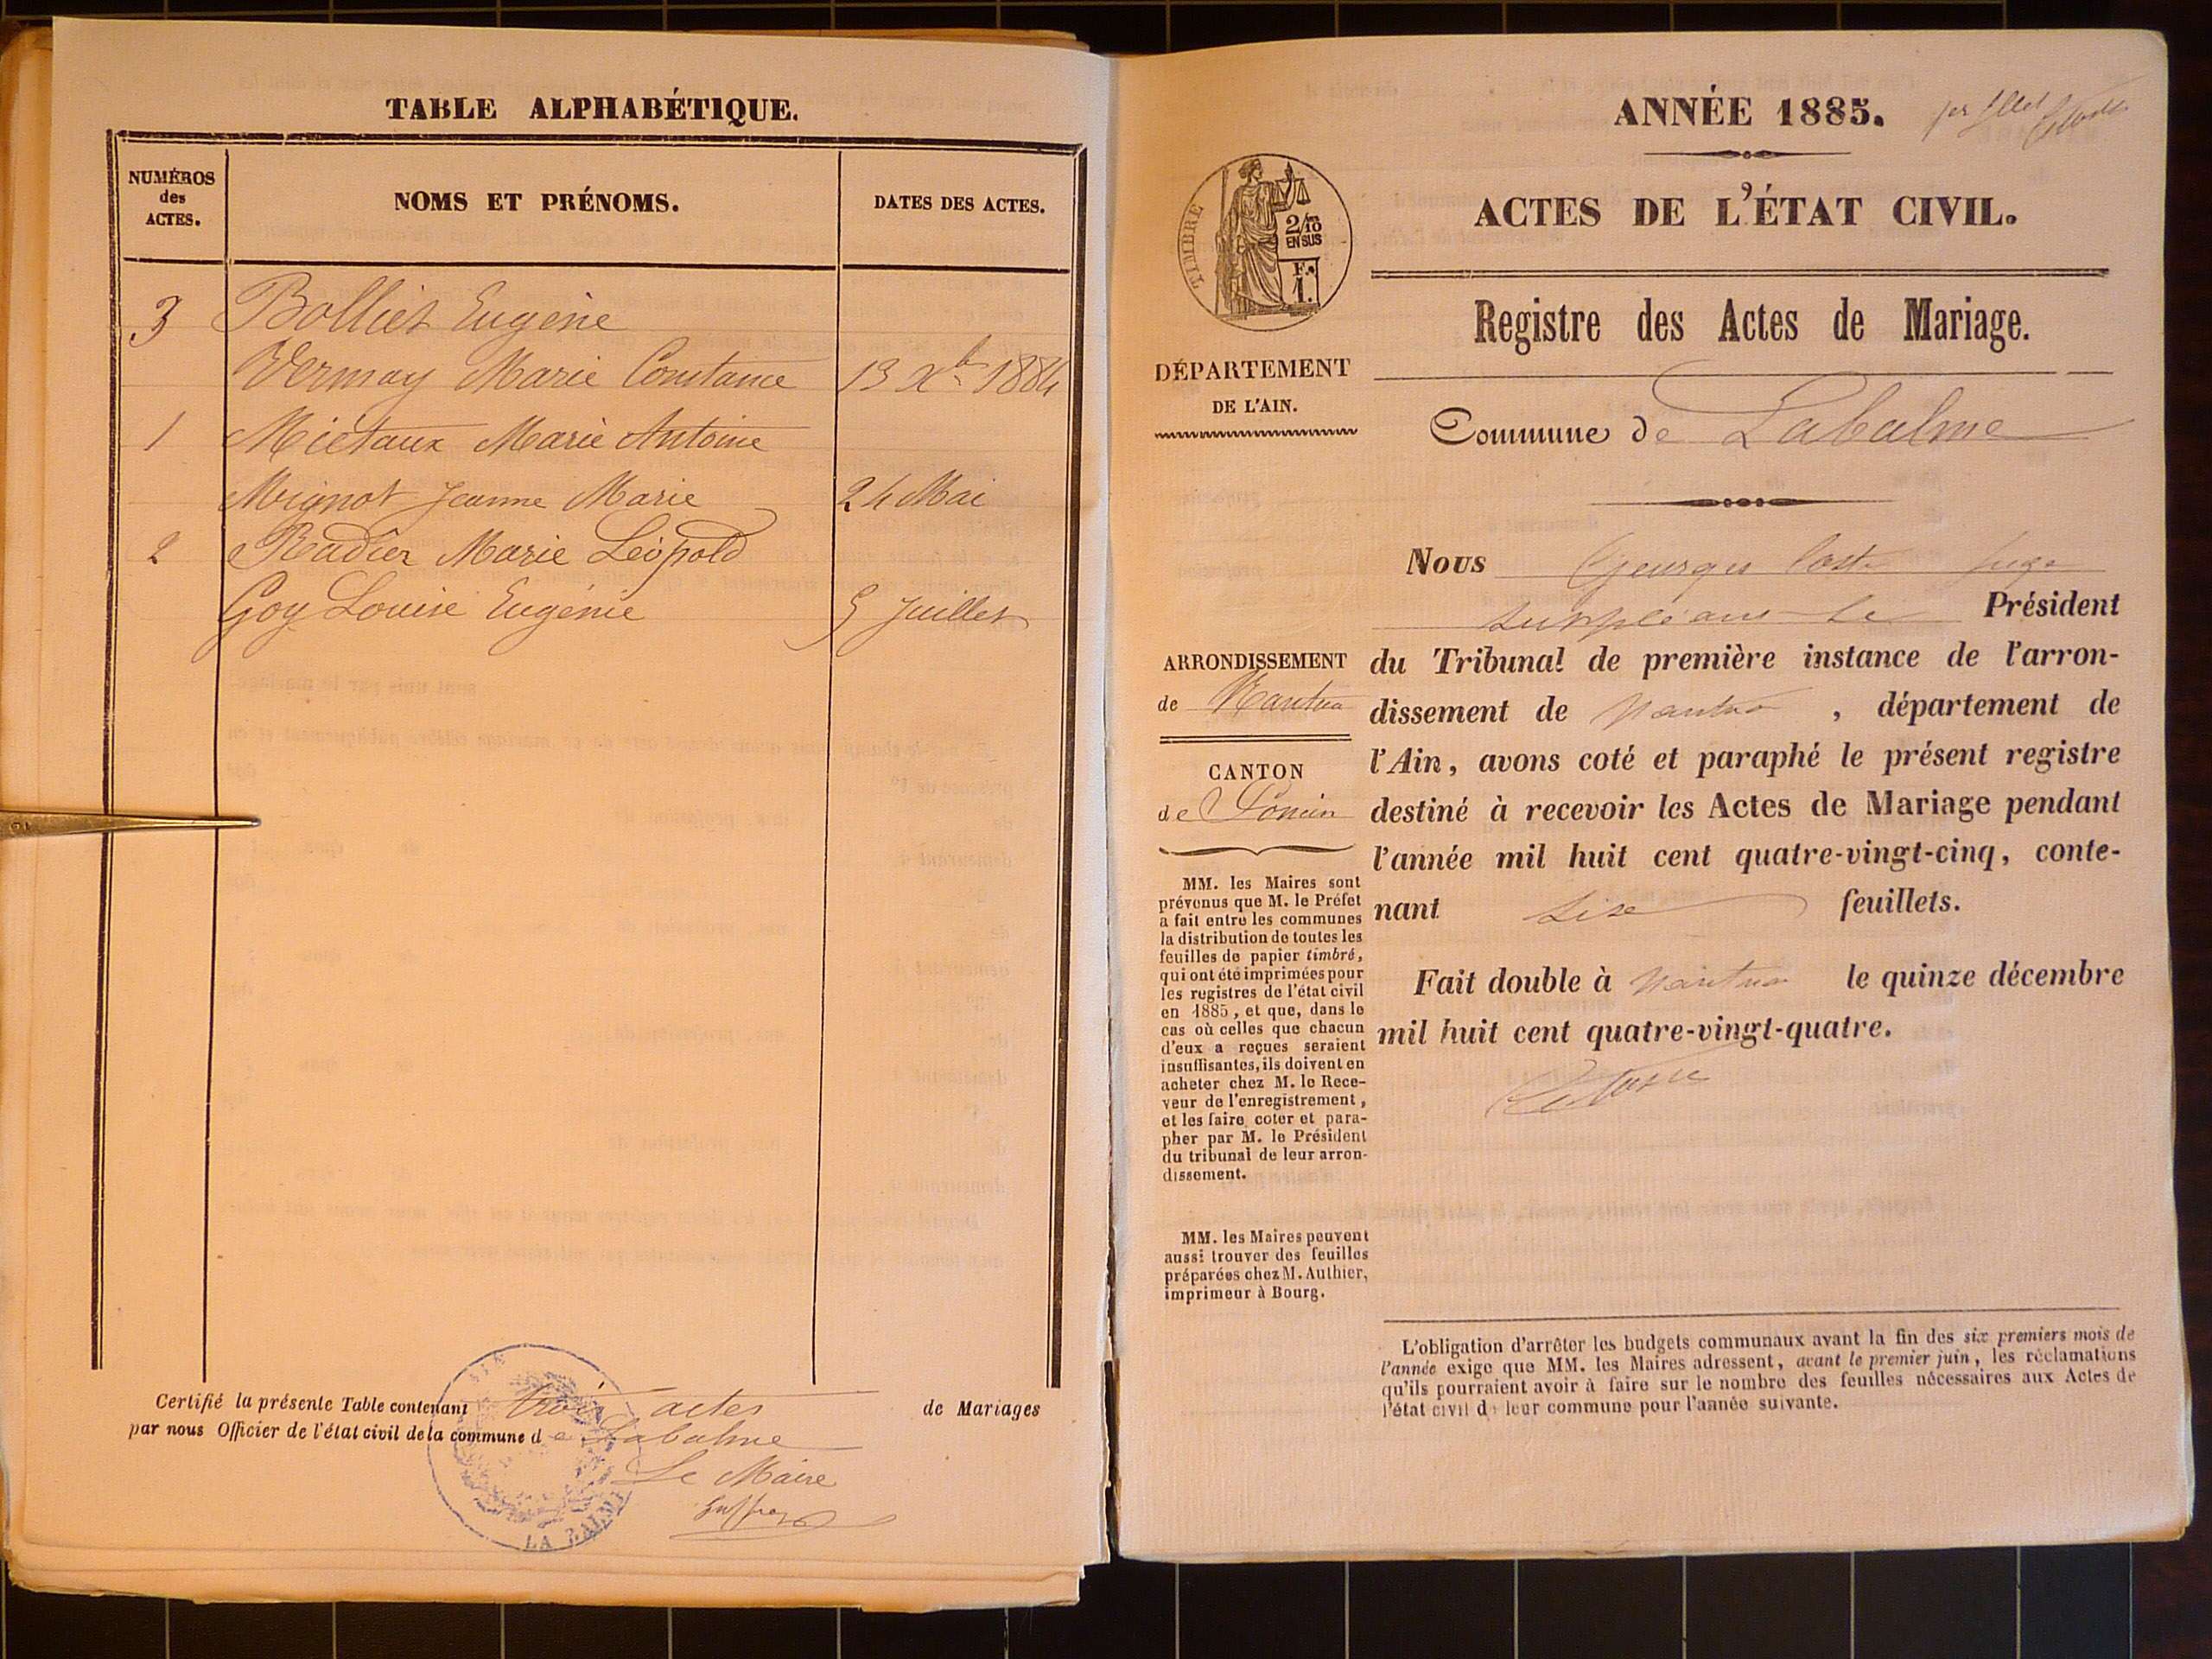 TABLE ALPHABÉTIQUE.
NUMÉROS
des
ACTES.
NOMS ET PRÉNOMS.
DATES DES ACTES.
3 Bolliet Eugène
Vermay Marie Constance 13 Xbre 1884
1 Miétaux Marie Antoine
Mignot Jeanne Marie 24 Mai
2 Radier Marie Léopold
Goy Louise Eugénie 5 Juillet
Certifié la présente Table contenant trois actes de Mariages
par nous Officier de l'état civil de la commune de Labalme
Le Maire
LA BALME
ANNÉE 1885.
ACTES DE L'ÉTAT CIVIL.
TIMBRE
2/10
EN SUS
F.
1.
Registre des Actes de Mariage.
DÉPARTEMENT
DE L'AIN.
Commune de Labalme
Nous Georges Coste Juge
suppléant le Président
du Tribunal de première instance de l'arron-
dissement de Nantua, département de
l'Ain, avons coté et paraphé le présent registre
destiné à recevoir les Actes de Mariage pendant
l'année mil huit cent quatre-vingt-cinq, conte-
nant six feuillets.
Fait double à Nantua le quinze décembre
mil huit cent quatre-vingt-quatre.
ARRONDISSEMENT
de Nantua
CANTON
de Poncin
MM. les Maires sont
prévenus que M. le Préfet
a fait entre les communes
la distribution de toutes les
feuilles de papier timbré,
qui ont été imprimées pour
les registres de l'état civil
en 1885, et que, dans le
cas où celles que chacun
d'eux a reçues seraient
insuffisantes, ils doivent en
acheter chez M. le Rece-
veur de l'enregistrement,
et les faire coter et para-
pher par M. le Président
du tribunal de leur arron-
dissement.
MM. les Maires peuvent
aussi trouver des feuilles
préparées chez M. Authier,
imprimeur à Bourg.
L'obligation d'arrêter les budgets communaux avant la fin des six premiers mois de
l'année exige que MM. les Maires adressent, avant le premier juin, les réclamations
qu'ils pourraient avoir à faire sur le nombre des feuilles nécessaires aux Actes de
l'état civil de leur commune pour l'année suivante.